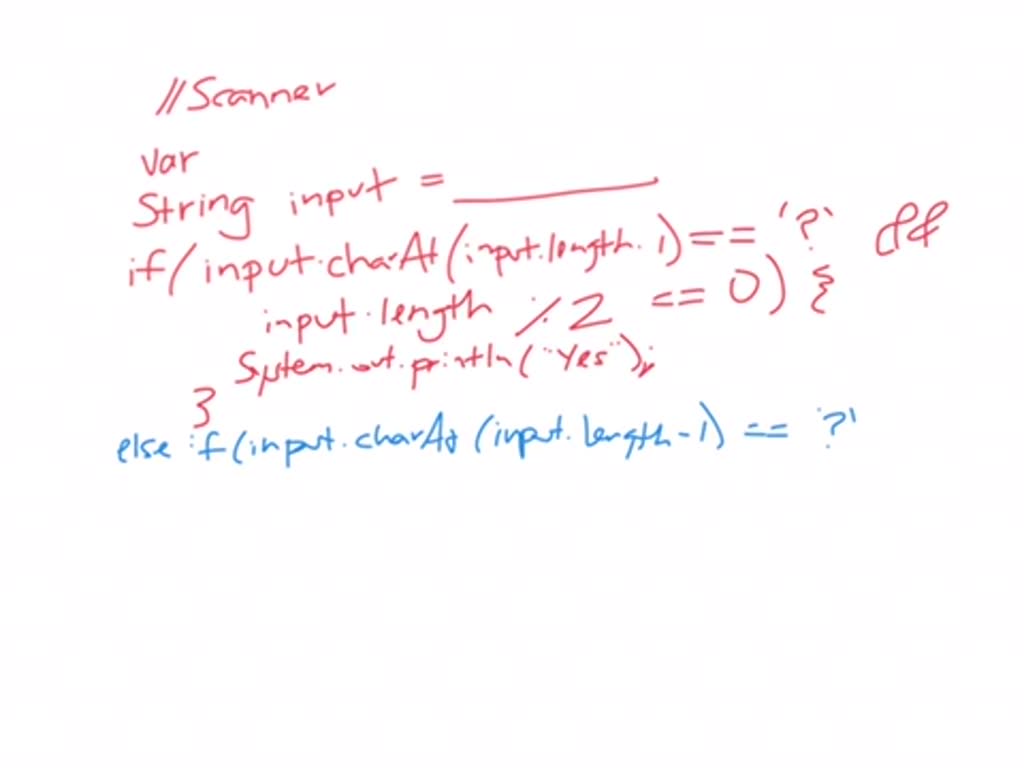 //Scanner
var
String input = ______
if(input.charAt(input.length.1)=='?' &&
input.length %2 == 0) {
System.out.println("Yes");
}
else if(input.charAt(input.length-1) == '?'